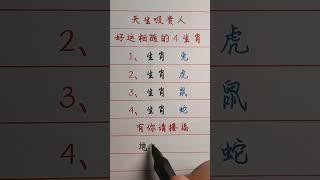 天生吸贵人
好运相随的4生肖
1、生肖 兔
2、生肖 虎
3、生肖 鼠
4、生肖 蛇
有你请接福
2、
3、
4、
虎
鼠
蛇